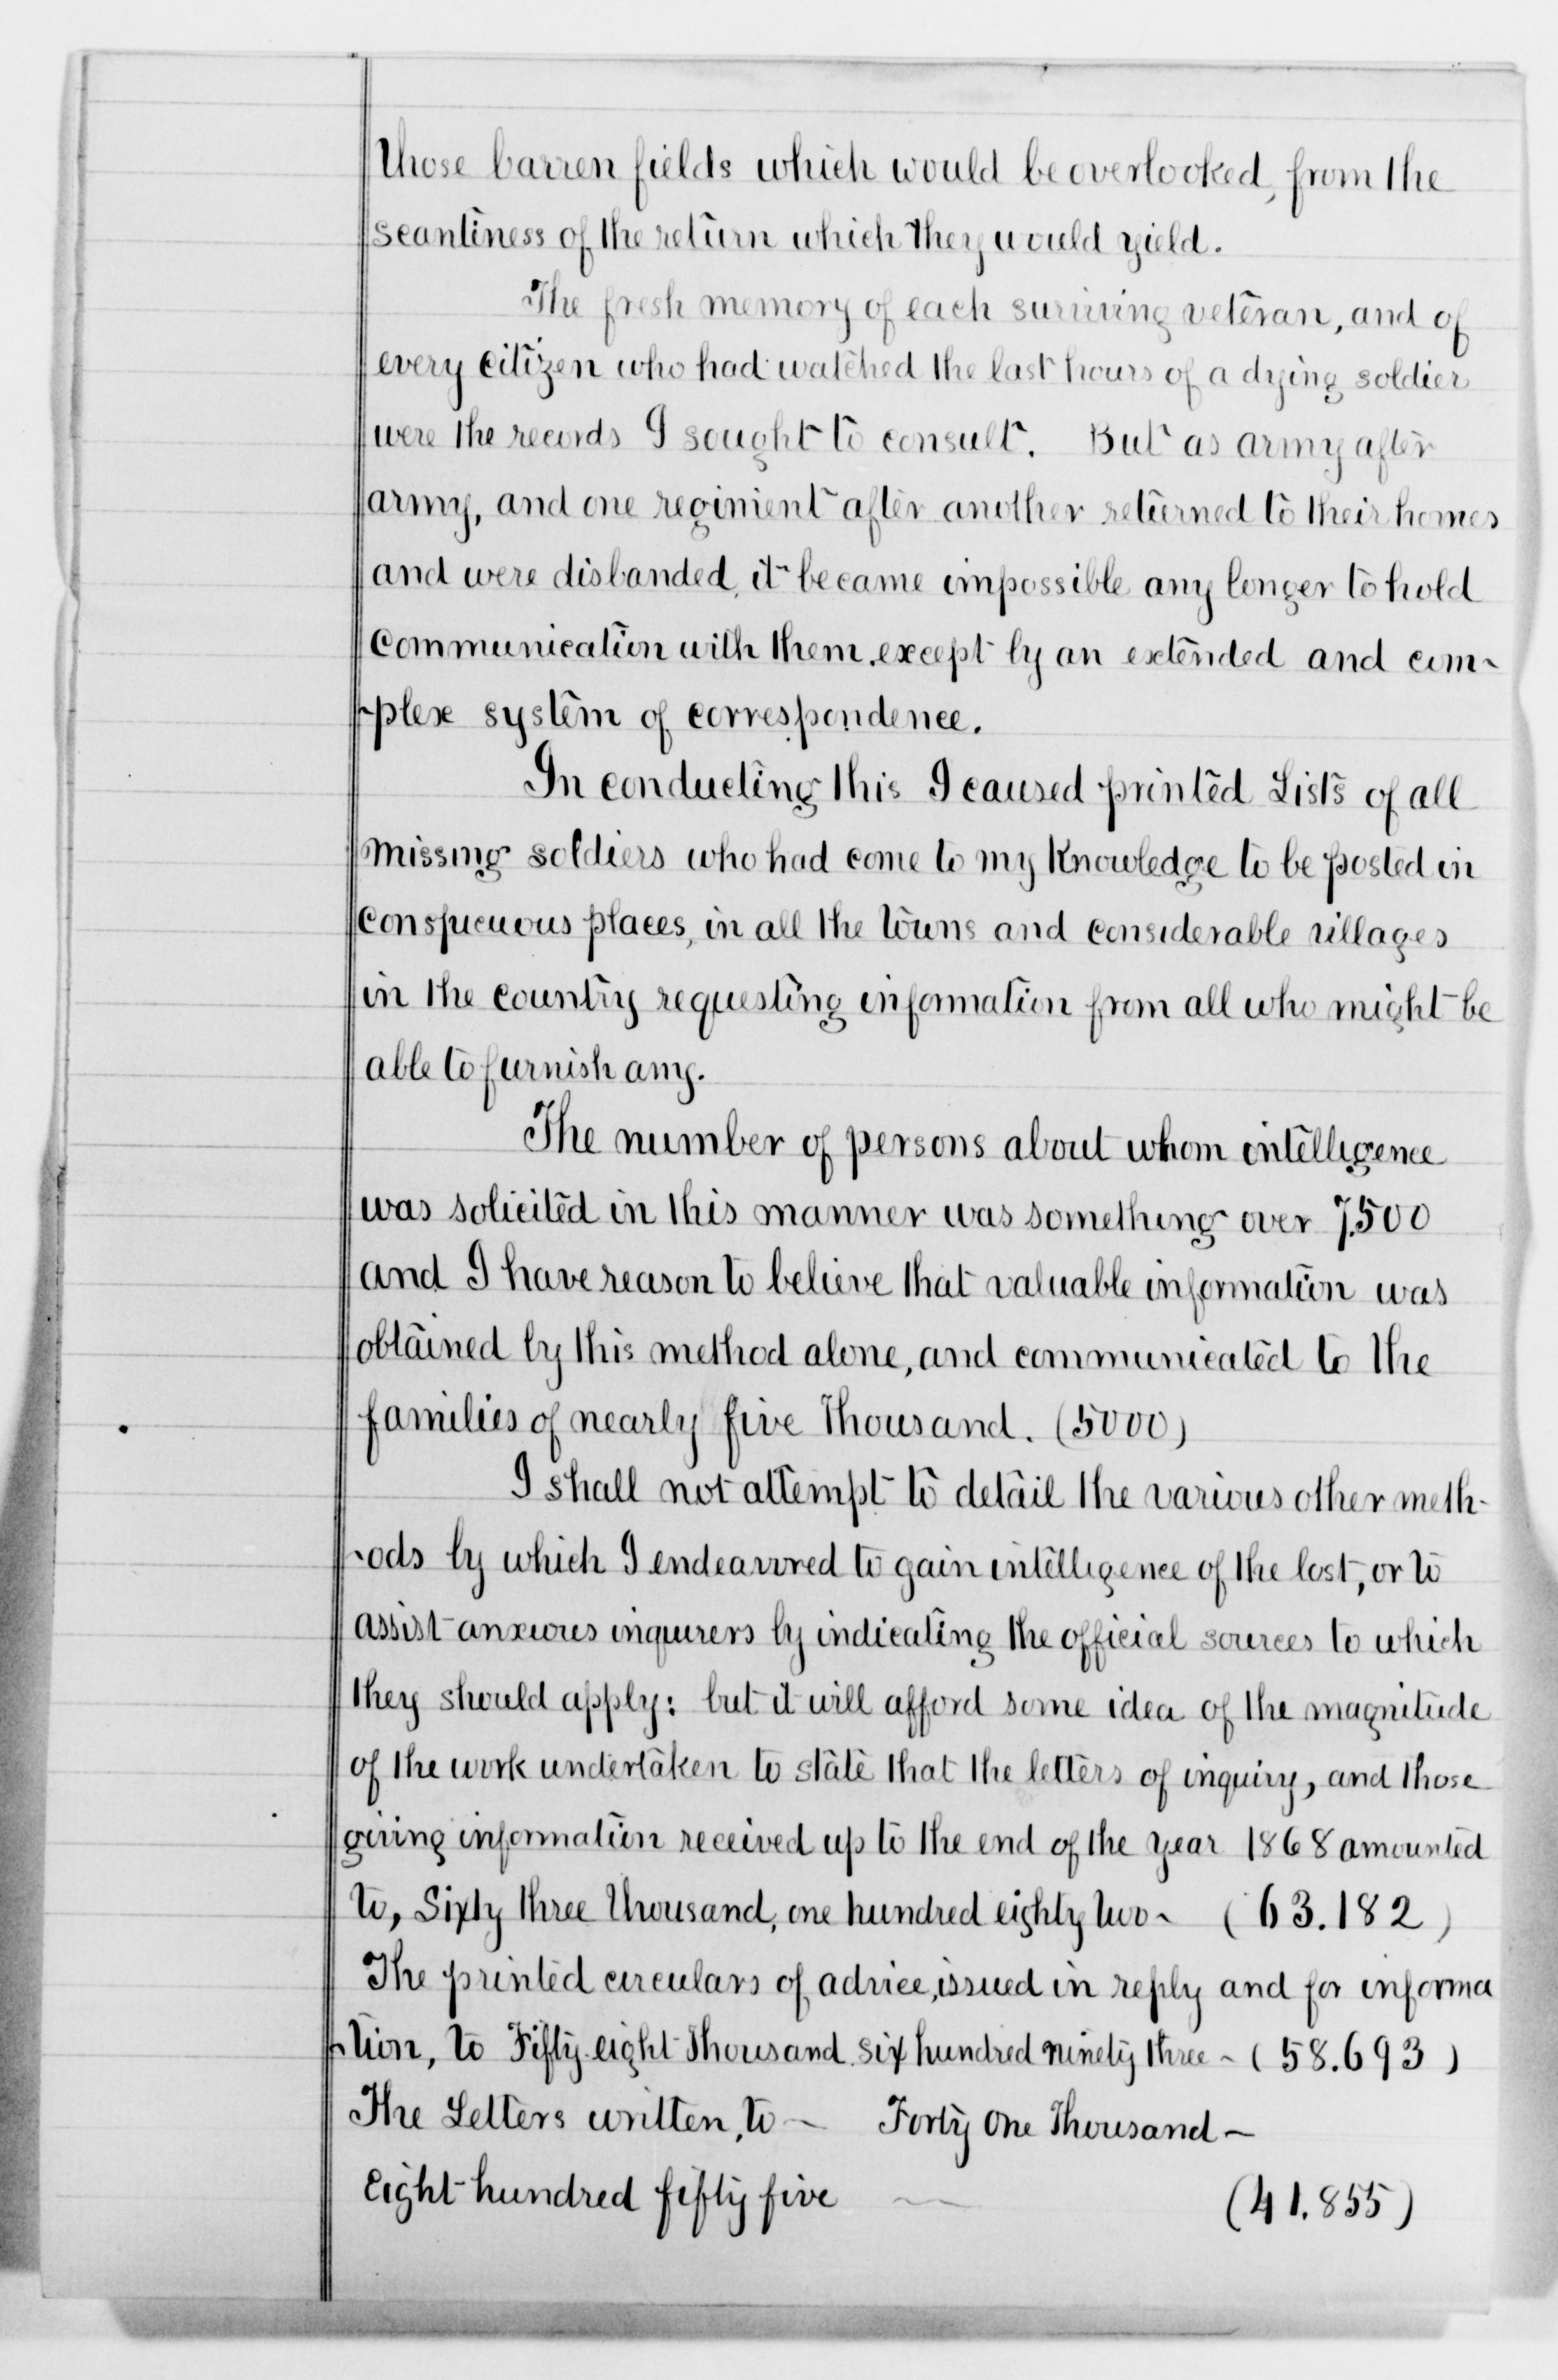 those barren fields which would be overlooked, from the
scantiness of the return which they would yield.
The fresh memory of each surviving veteran, and of
every citizen who had watched the last hours of a dying soldier
were the records I sought to consult. But as army after
army, and one regiment after another returned to their homes
and were disbanded, it became impossible any longer to hold
communication with them, except by an extended and com-
-plex system of correspondence.
In conducting this I caused printed Lists of all
missing soldiers who had come to my knowledge to be posted in
conspicuous places, in all the towns and considerable villages
in the country requesting information from all who might be
able to furnish any.
The number of persons about whom intelligence
was solicited in this manner was something over 7.500
and I have reason to believe that valuable information was
obtained by this method alone, and communicated to the
families of nearly five thousand. (5000)
I shall not attempt to detail the various other meth-
-ods by which I endeavored to gain intelligence of the lost, or to
assist anxious inquirers by indicating the official sources to which
they should apply: but it will afford some idea of the magnitude
of the work undertaken to state that the letters of inquiry, and those
giving information received up to the end of the year 1868 amounted
to, Sixty three thousand, one hundred eighty two - (63.182)
The printed circulars of advice, issued in reply and for informa
-tion, to Fifty-eight Thousand six hundred ninety three - (58.693)
The Letters written, to - Forty One Thousand -
Eight hundred fifty five — (41.855)